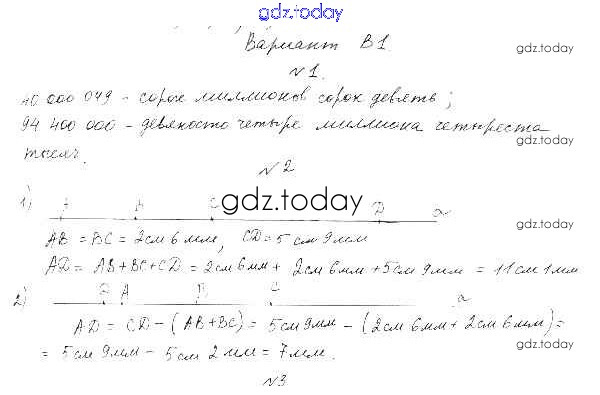 gdz.today
Вариант В1
gdz.today
№1.
40 000 049 - сорок миллионов сорок девять;
94 400 000 - девяносто четыре миллиона четыреста
gdz.today
тысяч.
№2
1) A B C D a
gdz.today
gdz.today
AB = BC = 2см 6мм, CD = 5см 9мм
AD = AB + BC + CD = 2см 6мм + 2см 6мм + 5см 9мм = 11см 1мм
2) D A B C a
AD = CD - (AB + BC) = 5см 9мм - (2см 6мм + 2см 6мм) =
gdz.today
= 5см 9мм - 5см 2мм = 7мм.
№3
gdz.today